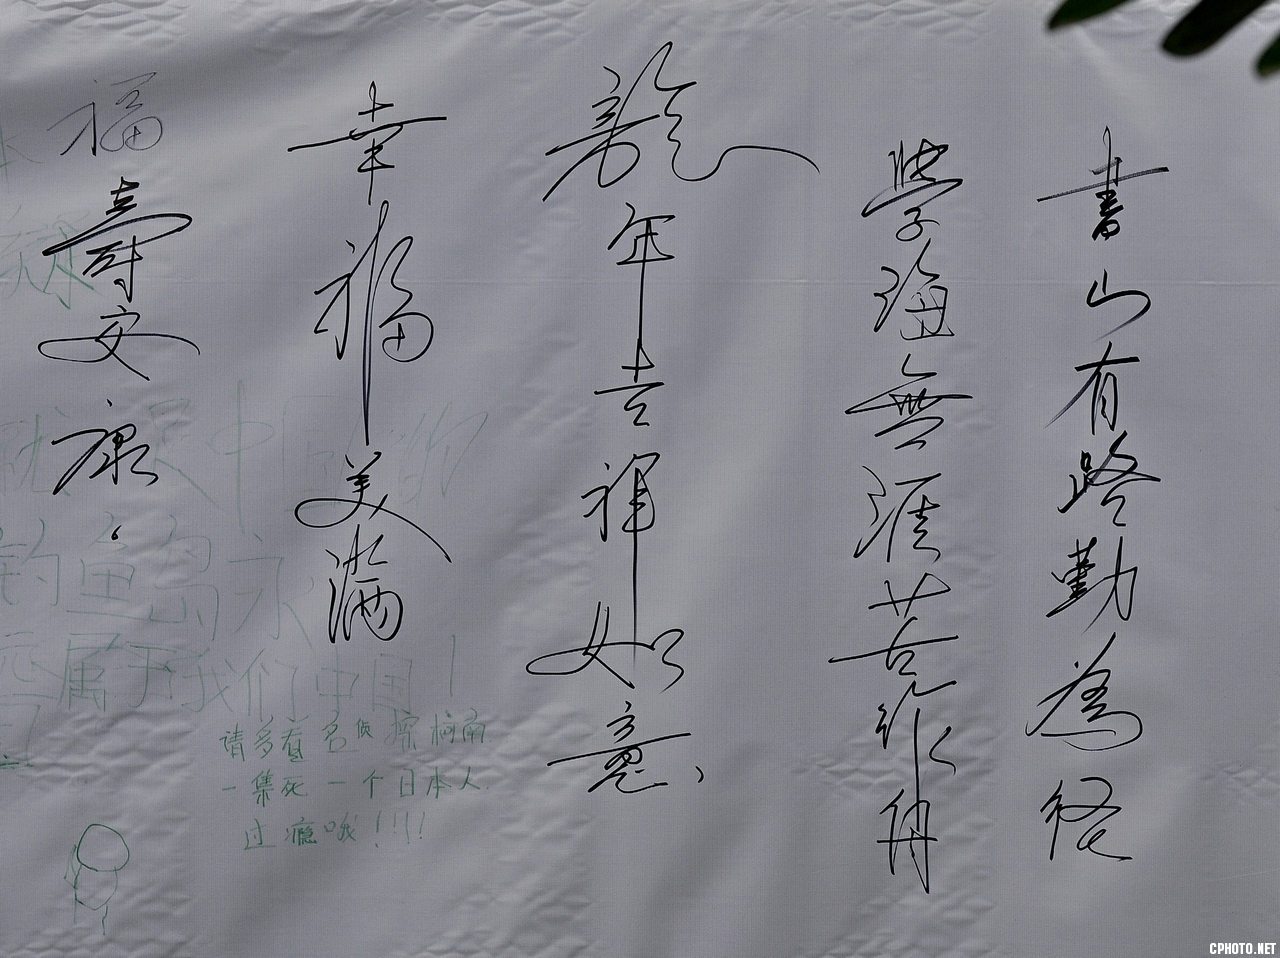 書山有路勤為径
學海無涯苦作舟
龍年吉祥如意
幸福美满
福壽安康
钓鱼岛永
属于我们中国!
请多看名侦探柯南
一集死一个日本人
过瘾哦!!!!
CPHOTO.NET